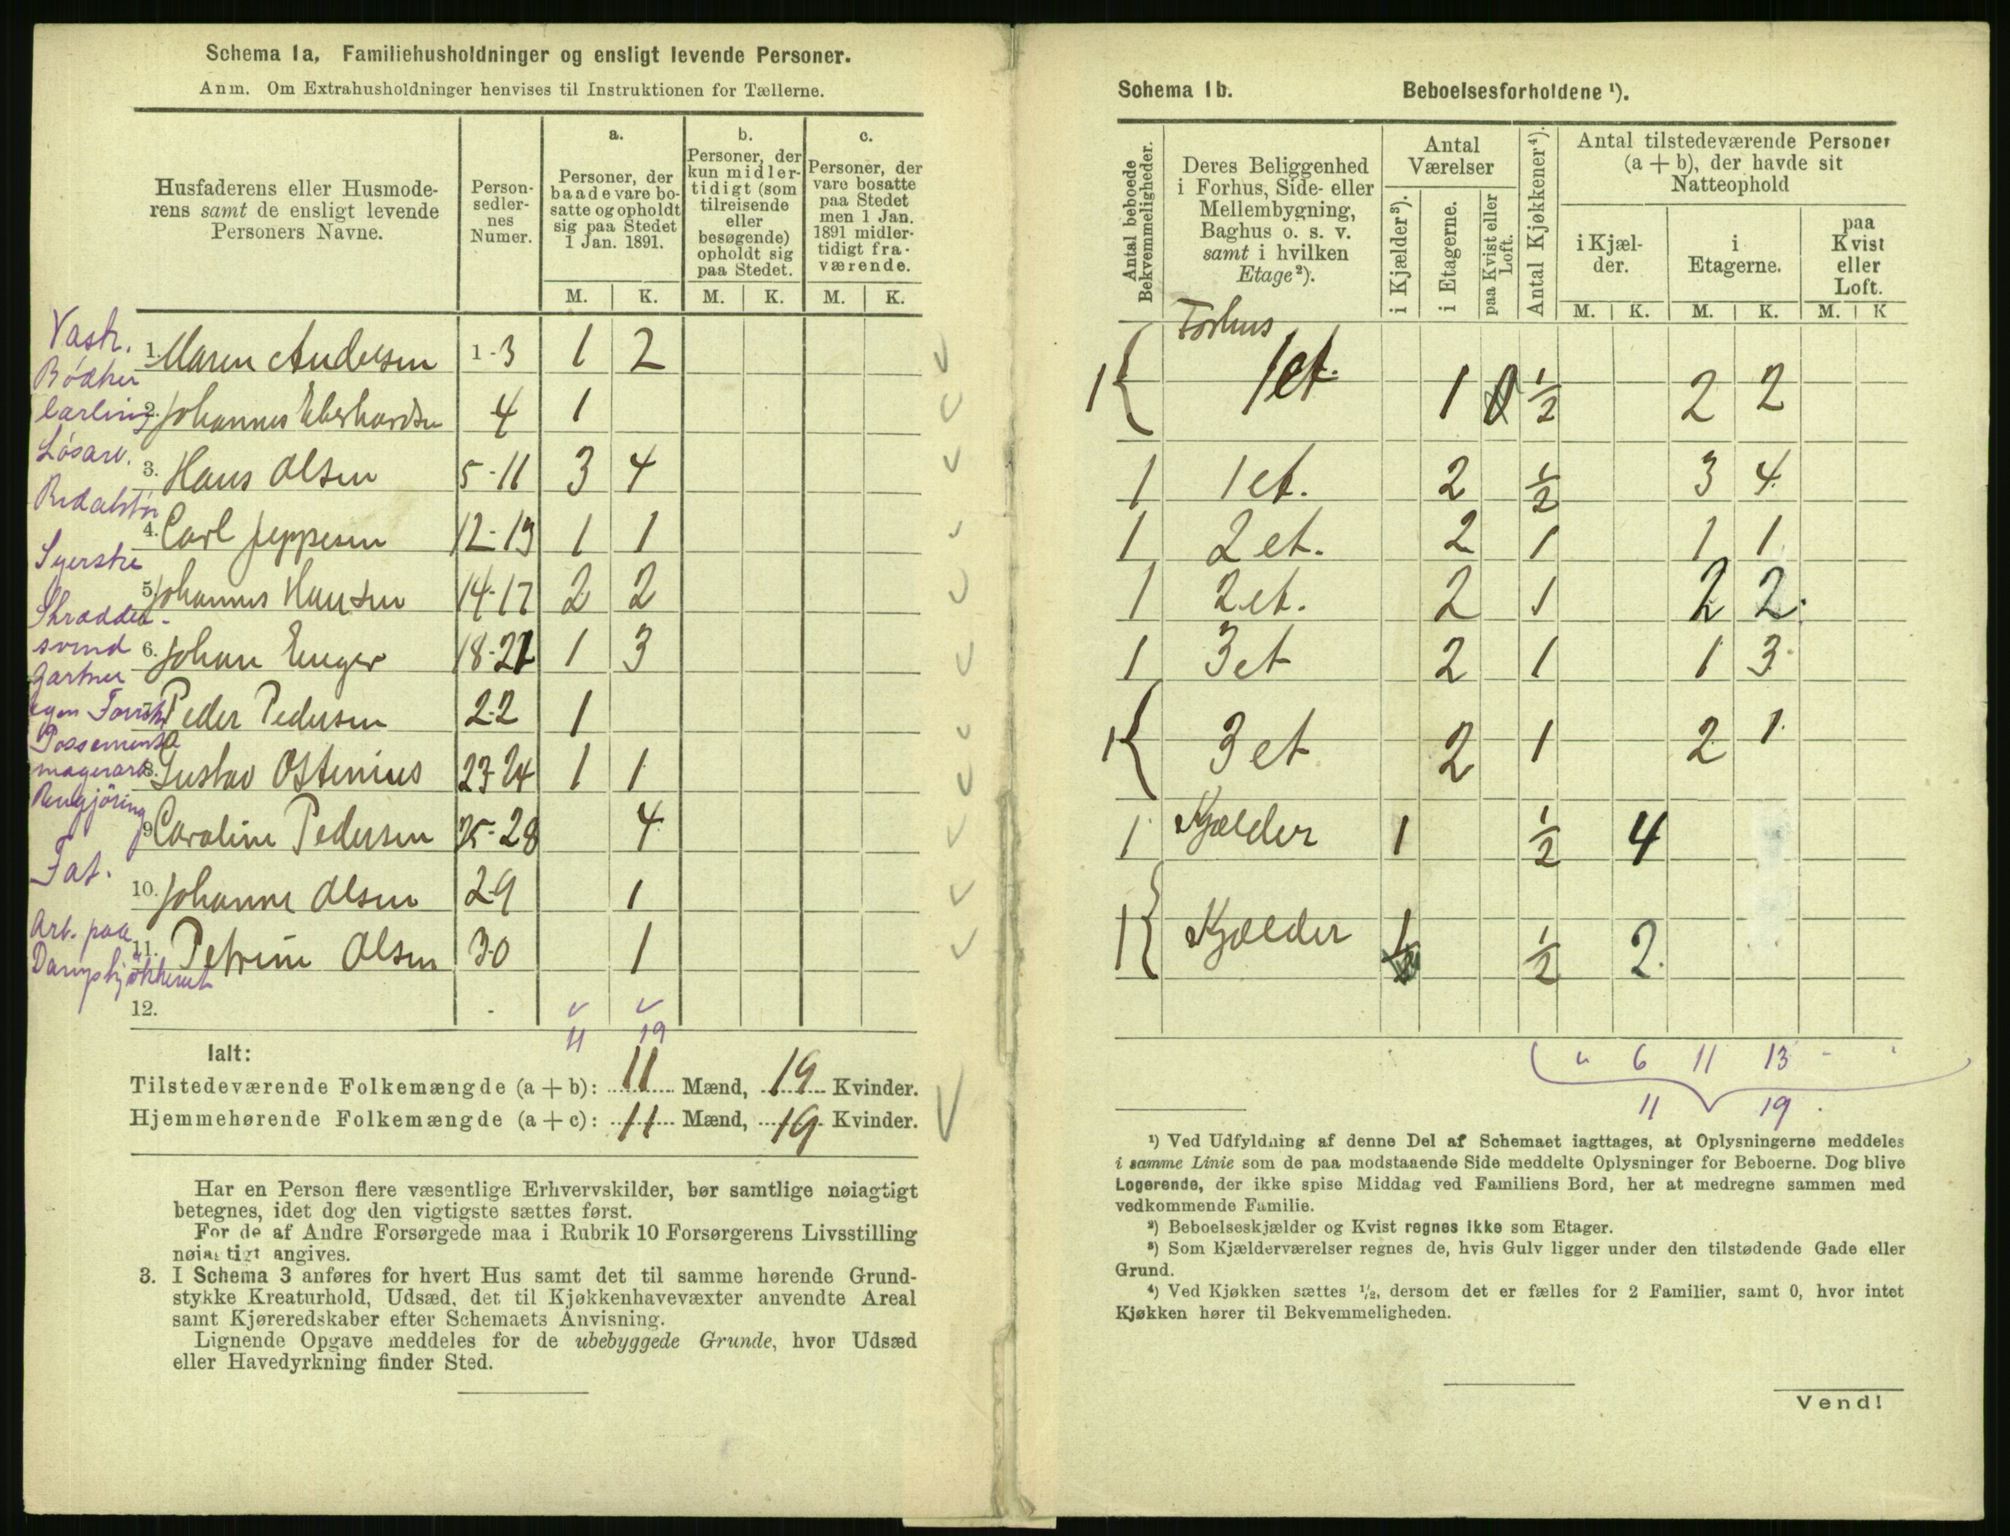 Schema 1a, Familiehusholdninger og ensligt levende Personer.
Anm. Om Extrahusholdninger henvises til Instruktionen for Tællerne.
Husfaderens eller Husmode-
rens samt de ensligt levende
Personers Navne.
Person-
sedler-
nes
Numer.
a.
Personer, der
baade vare bo-
satte og opholdt
sig paa Stedet
1 Jan. 1891.
M. K.
b.
Personer, der
kun midler-
tidigt (som
tilreisende
eller
besøgende)
opholdt sig
paa Stedet.
M. K.
c.
Personer, der
vare bosatte
paa Stedet
men 1 Jan.
1891 midler-
tidigt fra-
værende.
M. K.
Vask.
1. Maren Andersen 1-3 1 2
Bødker
lærling
2. Johannes Eberhardsen 4 1
Løsarb.
3. Hans Olsen 5-11 3 4
Redaktør
4. Carl Jeppesen 12-13 1 1
Syerske
5. Johannes Hansen 14-17 2 2
Skrædder-
svend
6. Johan Enger 18-21 1 3
Gartner
egen Forretn.
7. Peder Pedersen 22 1
Possement
magerarb.
8. Gustav Ostenius 23-24 1 1
Rengjøring
9. Caroline Pedersen 25-28 4
Fat.
10. Johanne Olsen 29 1
Arb. paa
Dampkjøkkenet
11. Petrine Olsen 30 1
12.
11 19
Ialt:
Tilstedeværende Folkemængde (a + b): 11 Mænd, 19 Kvinder.
Hjemmehørende Folkemængde (a + c): 11 Mænd, 19 Kvinder.
Har en Person flere væsentlige Erhvervskilder, bør samtlige nøiagtigt
betegnes, idet dog den vigtigste sættes først.
For de af Andre Forsørgede maa i Rubrik 10 Forsørgerens Livsstilling
nøiagtigt angives.
3. I Schema 3 anføres for hvert Hus samt det til samme hørende Grund-
stykke Kreaturhold, Udsæd, det til Kjøkkenhavevæxter anvendte Areal
samt Kjøreredskaber efter Schemaets Anvisning.
Lignende Opgave meddeles for de ubebyggede Grunde, hvor Udsæd
eller Havedyrkning finder Sted.
Schema 1b. Beboelsesforholdene ¹).
Antal beboede
Bekvemmeligheder.
Deres Beliggenhed
i Forhus, Side- eller
Mellembygning,
Baghus o. s. v.
samt i hvilken
Etage ²).
Antal
Værelser
i Kjælder ³).
i Etagerne.
paa Kvist eller
Loft.
Antal Kjøkkener ⁴).
Antal tilstedeværende Personer
(a + b), der havde sit
Natteophold
i Kjæl-
der.
M. K.
i
Etagerne.
M. K.
paa
Kvist
eller
Loft.
M. K
Forhus
1 1 et. 1 ½ 2 2
1 1 et. 2 ½ 3 4
1 2 et. 2 1 1 1
1 2 et. 2 1 2 2
1 3 et 2 1 1 3
1 3 et 2 1 2 1
1 Kjælder 1 ½ 4
1 Kjælder 1 ½ 2
" 6 11 13 - -
11 19
¹) Ved Udfyldning af denne Del af Schemaet iagttages, at Oplysningerne meddeles
i samme Linie som de paa modstaaende Side meddelte Oplysninger for Beboerne. Dog blive
Logerende, der ikke spise Middag ved Familiens Bord, her at medregne sammen med
vedkommende Familie.
²) Beboelseskjælder og Kvist regnes ikke som Etager.
³) Som Kjælderværelser regnes de, hvis Gulv ligger under den tilstødende Gade eller
Grund.
⁴) Ved Kjøkken sættes ½, dersom det er fælles for 2 Familier, samt 0, hvor intet
Kjøkken hører til Bekvemmeligheden.
Vend!